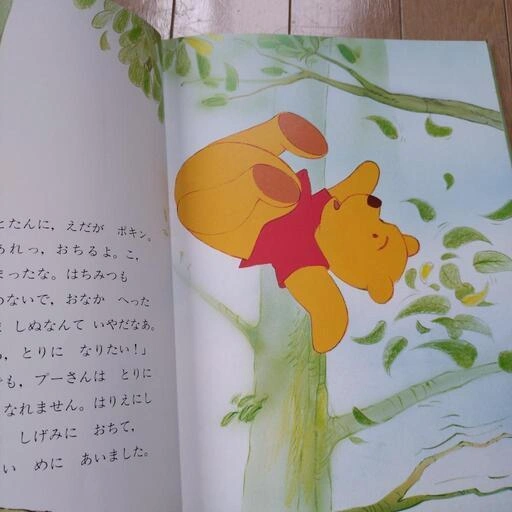 とたんに，えだが ポキン。
あれっ，おちるよ。こ，
まったな。はちみつも
ないで，おなか へった
しぬなんて いやだなあ。
とりに なりたい！」
でも，プーさんは とりに
なれません。はりえにし
しげみに おちて，
い めに あいました。